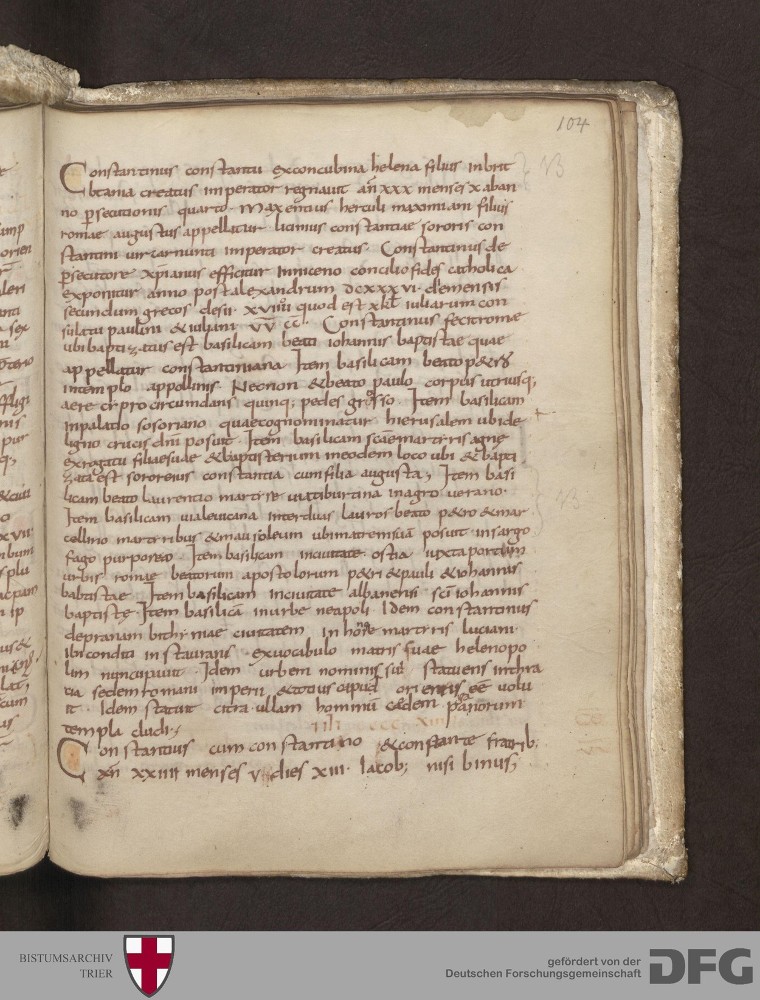 104
Constantinus constantii exconcubina helena filius inbrit
btania creatus imperator regnauit añ xxx menses x aban
no p̲secutionis quarto. Maxentius herculi maximiani filius
romae augustus appellatur licinius constantiae sororis con
stantini uir carnunti imperator creatus. Constantinus de
p̲secutore xp̄ianus efficitur Inniceno concilio fides catholica
exponitur anno post alexandrum dcxxxvi. clemensis
secundum grecos desii. xviiii quod est xkl iuliarum con
sulatu paulini & iuliani v̄v̄ cc. Constantinus fecit rome
ubi baptizatus est basilicam beati iohannis baptistae quae
appellatur constantiniana Item basilicam beato p&ro
intemplo appollinis Necnon & beato paulo corpus utriusq;
aere cipro circumdans quinq; pedes grosso. Item basilicam
inpalatio sosoriano quae cognominatur hierusalem ubi de
ligno crucis dñi posuit. Item basilicam scae martiris agne
exrogatu filiae suae & baptisterium ineodem loco ubi & bapti
zata est soror eius constantia cum filia augusta; Item basi
licam beato laurentio martire uia tiburtina inagro uerano.
Item basilicam uia leuicana inter duas lauros beato p&ro & mar
cellino martiribus & mausoleum ubi matrem suã posuit insargo
fago purporeo. Item basilicam inciuitate ostia iuxta portum
urbis romae beatorum apostolorum p&ri & pauli & iohannis
babtistae Item basilicam inciuitate albanensi sc̄i iohannis
baptistę. Item basilicã inurbe neapoli. Idem constantinus
depranam bithiniae ciuitatem in honore martiris luciani
ibi conditi instaurans. exuocabulo matris suae helenopo
lim nuncupauit. Idem urbem nominis sui statuens inthra
tia sedem romani imperii & totius caput orientis eē uolu
it. Idem statuit citra ullam hominũ cædem paganorum
templa cludi;
Constantius cum constantino & constante fratrib;
xñ xxiiii menses v dies xiii. Iacob; nisibinus
BISTUMSARCHIV
TRIER
gefördert von der
Deutschen Forschungsgemeinschaft
DFG